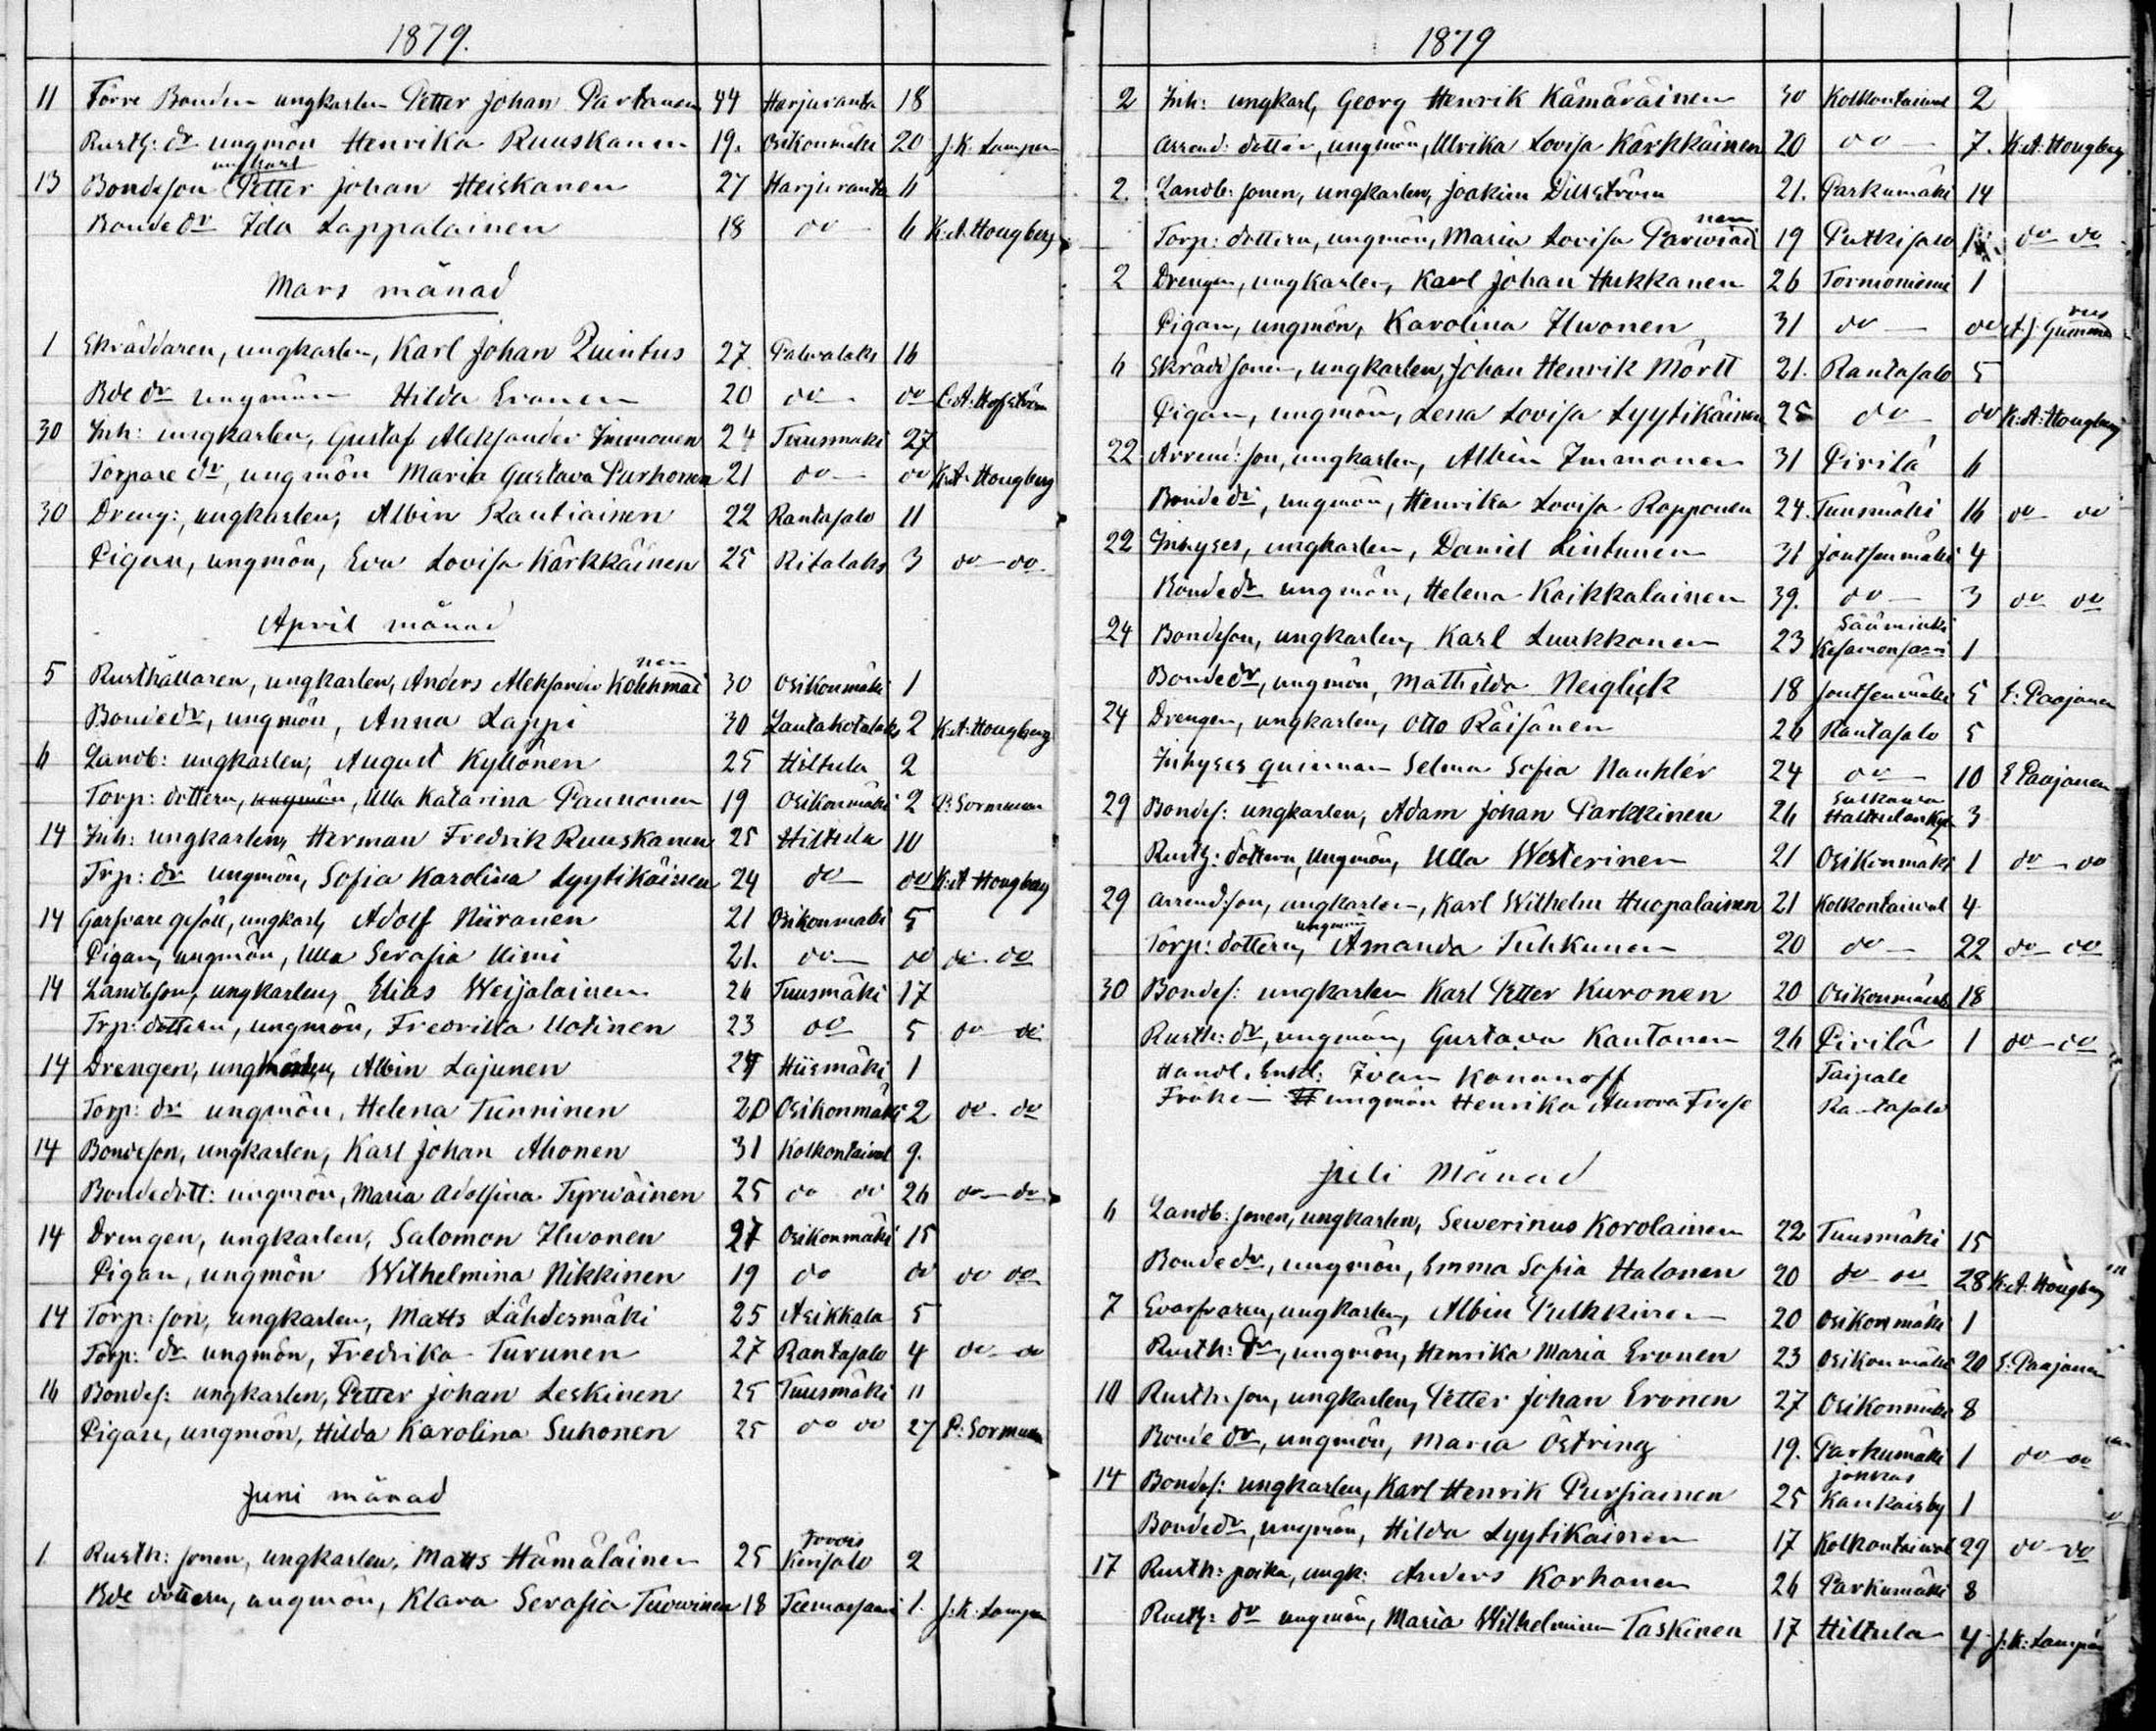 1879.
11 Förre Bonden ungkarlen Petter Johan Partanen 44 Harjuranta 18
Rusth: dr ungmön Henrika Ruuskanen 19. Osikonmäki 20 J. K. Lampen
13 Bondeson ungkarl Petter Johan Heiskanen 27 Harjuranta 11
Bonde dr Ida Lappalainen 18 do 6 K. A. Hougberg
Mars månad
1 Skräddaren, ungkarlen, Karl Johan Quintus 27. Palvalaks 16
Bde dr ungmön Hilda Eronen 20 do do C. A. Hofström
30 Inh: ungkarlen, Gustaf Aleksander Immonen 24 Tuusmäki 27
Torpare dr, ungmön Maria Gustava Purhonen 21 do do K. A. Hougberg
30 Dreng:, ungkarlen, Albin Rautiainen 22 Rantasalo 11
Pigan, ungmön, Eva Lovisa Kärkkäinen 25 Ritalaks 3 do do
April månad
5 Rusthållaren, ungkarlen, Anders Aleksander Kolehmainen 30 Osikonmäki 1
Bondedr, ungmön, Anna Lappi 30 Lautakotalaks 2 K. A. Hougberg
6 Landb: ungkarlen, August Kyllönen 25 Hiltula 2
Torp: dottern, ungmön, Ulla Katarina Paunonen 19 Osikonmäki 2 P. Sormunen
14 Inh: ungkarlen, Herman Fredrik Ruuskanen 25 Hiltula 10
Trp: dr ungmön, Sofia Karolina Lyytikäinen 24 do do K. A. Hougberg
14 Garfvare gesäll, ungkarl, Adolf Niiranen 21 Osikonmäki 5
Pigan, ungmön, Ulla Serafia Miimi 21. do do do do
14 Landbson, ungkarlen, Elias Weijalainen 26 Tuusmäki 17
Trp: dottern, ungmön, Fredrika Uotinen 23 do 5 do do
14 Drengen, ungkarlen, Albin Lajunen 24 Hiismäki 1
Torp: dr ungmön, Helena Tunninen 20 Osikonmäki 2 do do
14 Bondeson, ungkarlen, Karl Johan Ahonen 31 Kolkontaival 9.
Bondedott: ungmön, Maria Adolfina Tyrwäinen 25 do do 26 do do
14 Drengen, ungkarlen, Salomon Ilwonen 27 Osikonmäki 15
Pigan, ungmön Wilhelmina Nikkinen 19 do do do do
14 Torp: son, ungkarlen, Matts Lähdesmäki 25 Asikkala 5
Torp: dr ungmön, Fredrika Turunen 27 Rantasalo 4 do do
16 Bondes: ungkarlen, Petter Johan Leskinen 25 Tuusmäki 11
Pigan, ungmön, Hilda Karolina Suhonen 25 do do 27 P. Sormunen
Juni månad
1 Rusth: sonen, ungkarlen, Matts Hämäläinen 25 Jorois Kinsalo 2
Bde dottern, ungmön, Klara Serafia Tuowinen 18 Teemassaari 1. J. K. Lampen
1879
2 Inh: ungkarl, Georg Henrik Kämäräinen 30 Kolkontaival 2
Arrend: dotter, ungmön, Ulrika Lovisa Kärkkäinen 20 do 7. K. A. Hougberg
2. Landb: sonen, ungkarlen, Joakim Dillström 21. Parkumäki 14
Torp: dottern, ungmön, Maria Lovisa Parwiainen 19 Putkisalo do do
2 Drengen, ungkarlen, Karl Johan Hukkanen 26 Tornioniemi 1
Pigan, ungmön, Karolina Ilwonen 31 do do A. J. Gummerus
6 Skrädd sonen, ungkarlen, Johan Henrik Mörtt 21. Rantasalo 5
Pigan, ungmön, Lena Lovisa Lyytikäinen 25 do do K. A. Hougberg
22 Arrend: son, ungkarlen, Albin Immonen 31 Pirilä 6
Bondedr, ungmön, Henrika Lovisa Rapponen 24. Tuusmäki 16 do do
22 Inhyses, ungkarlen, Daniel Lintunen 31 Joutsenmäki 4
Bondedr ungmön, Helena Kaikkalainen 39. do 3 do do
24 Bondeson, ungkarlen, Karl Luukkonen 23 Sääminki Kesamonsaari 1
Bondedr, ungmön, Mathilda Neiglick 18 Joutsenmäki 5 E. Paajanen
24 Drengen, ungkarlen, Otto Räisänen 26 Rantasalo 5
Inhyses quinnan Selma Sofia Naukler 24 do 10 E Paajanen
29 Bondes: ungkarlen, Adam Johan Parkkinen 26 Sulkava Halttulankyl 3
Rusth: dottern, Ungmön, Ulla Westerinen 21 Osikonmäki 1 do do
29 Arrend: son, ungkarlen, Karl Wilhelm Huopalainen 21 Kolkontaival 4
Torp: dottern, ungmön Amanda Tuhkunen 20 do 22 do do
30 Bondes: ungkarlen Karl Petter Kuronen 20 Osikonmäki 18
Rusth: dr, ungmön, Gustava Kautonen 26 Pirilä 1 do do
Handl. Enkl: Ivan Kononoff Taipale
Fröken ungmön Henrika Aurora Frese Rantasalo
Juli Månad
6 Landb: sonen, ungkarlen, Sewerinus Korolainen 22 Tuusmäki 15
Bondedr, ungmön, Emma Sofia Halonen 20 do do 28 K. A. Hougberg
7 Svarfvaren, ungkarlen, Albin Pulkkinen 20 Osikonmäki 1
Rusth: dr, ungmön, Henrika Maria Eronen 23 Osikonmäki 20 E. Paajanen
10 Rusth: son, ungkarlen, Petter Johan Eronen 27 Osikonmäki 8
Bonde dr, ungmön, Maria Östring 19. Parkumäki 1 do do
14 Bondes: ungkarlen, Karl Henrik Pursiainen 25 Jokkas Kaukaisby 1
Bondedr, ungmön, Hilda Lyytikäinen 17 Kolkontaival 29 do do
17 Rusth: poika, ungk: Anders Korhonen 26 Parkumäki 8
Rusth: dr ungmön, Maria Wilhelmina Taskinen 17 Hiltula 4 J. K. Lampen